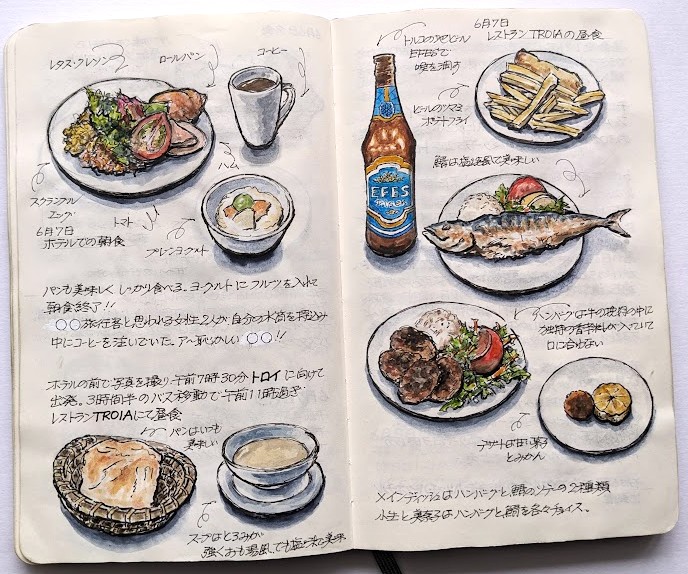 レタス・クレソン
ロールパン
コーヒー
ハム
スクランブル
エッグ
トマト
プレーンヨーグルト
6月7日
ホテルでの朝食
パンも美味しくしっかり食べる。ヨーグルトにフルーツを入れて
朝食終了!!
〇〇旅行客と思われる女性2人が自分の水筒を持込み
中にコーヒーを注いでいた。ア〜恥ずかしい〇〇!!
ホテルの前で写真を撮り午前7時30分トロイに向けて
出発。3時間半のバス移動で午前11時過ぎ
レストランTROIAにて昼食
パンはいつも
美味しい
スープはとろみが
強くおも湯風、でも塩
美味
6月7日
レストランTROIAの昼食
トルコの
ビール
EFESで
喉を潤す
EFES
ビールのツマミ
ポテトフライ
鯖は塩焼風で美味しい
ハンバーグは牛の挽肉の中に
独特の香辛料が入っていて
口に合わない
デザートは甘い菓子
とみかん
メインディッシュはハンバーグと、鯖のソテーの2種類
小生と
はハンバーグと、鯖を各々チョイス。